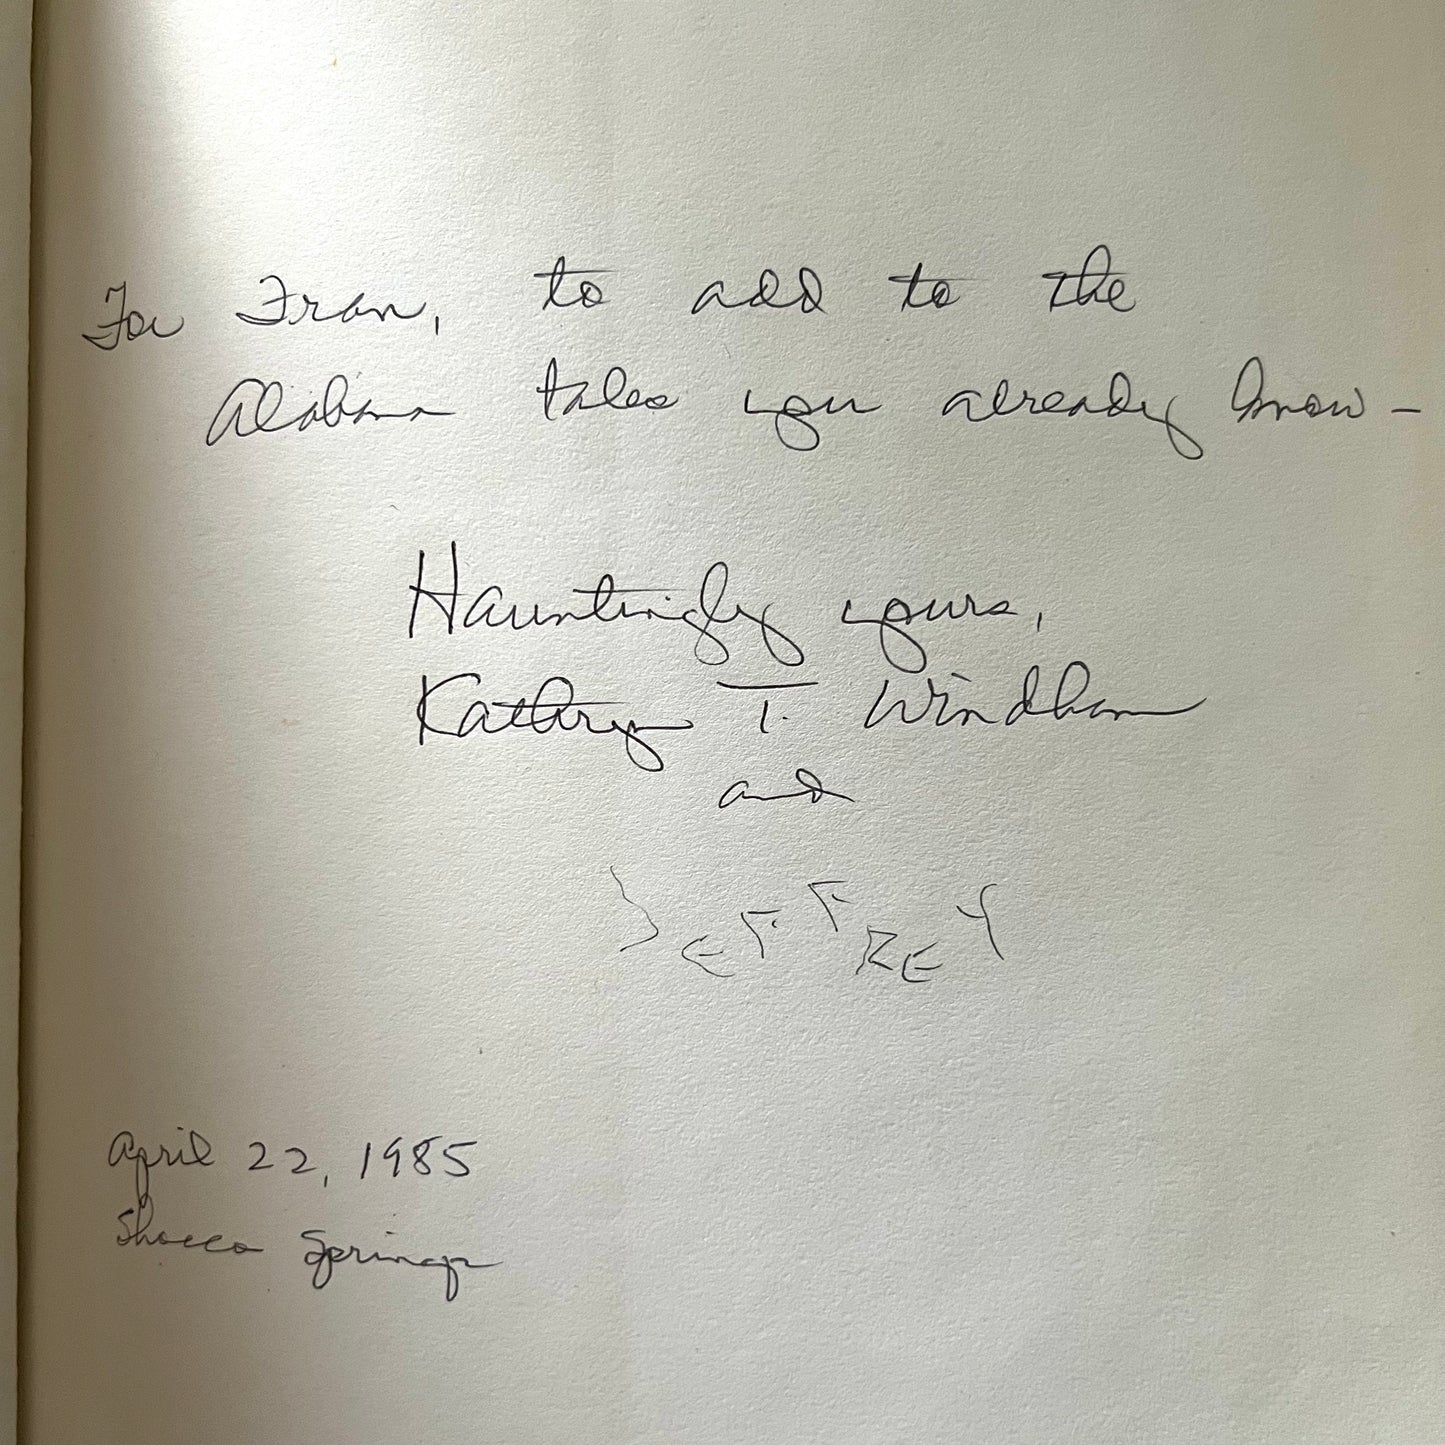 For Fran, to add to the
Alabama tales you already know -
Hauntingly yours,
Kathryn T. Windham
and
JEFFREY
April 22, 1985
Shocco Springs